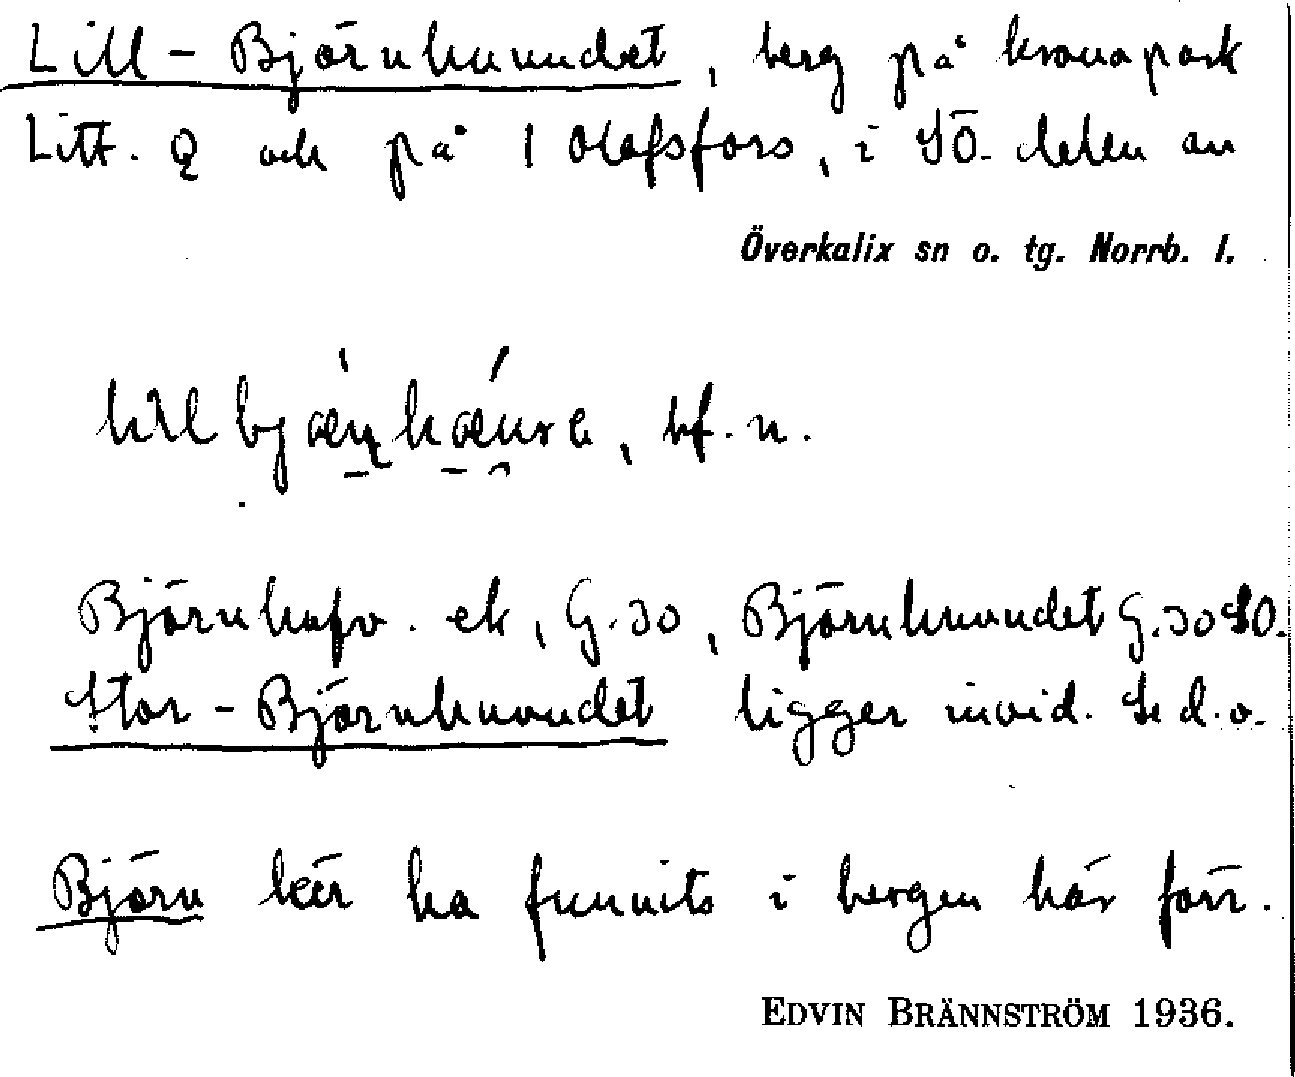 Lill-Björnhuvudet, berg på kronopark
Litt. Q och på 1 Olofsfors, i SÖ. delen av
Överkalix sn o. tg. Norrb. l.
bf. n.
Björnhufv. ek, G. 30, Björnhuvudet G. 30 SO.
Stor-Björnhuvudet ligger invid. Se d. o.
Björn lär ha funnits i bergen här förr.
EDVIN BRÄNNSTRÖM 1936.